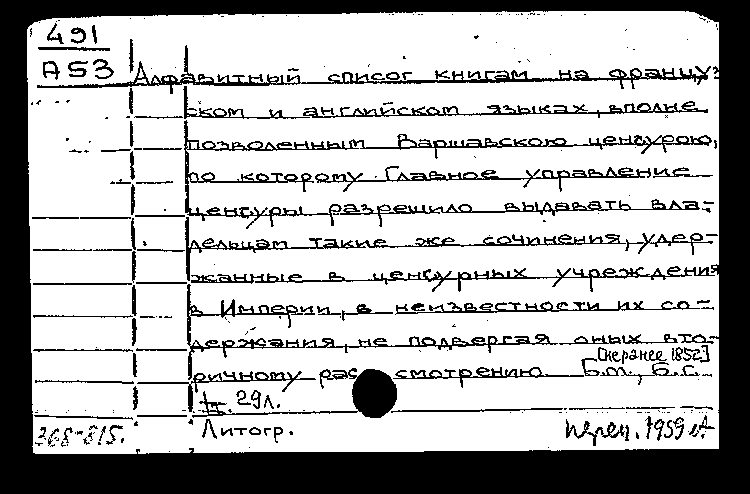 491
А53
Алфавитный список книгам на француз
ском и английском языках, вполне
позволенным Варшавскою цензурою,
по которому Главное управление
цензуры разрешило выдавать вла-
дельцам такие же сочинения, удер-
жанные в цензурных учреждения
в Империи, в неизвестности их со-
держания, не подвергая оных вто-
[не ранее 1852]
ричному рассмотрению. Б.м., Б.г.
29л.
368-815. Литогр. 1959 г.